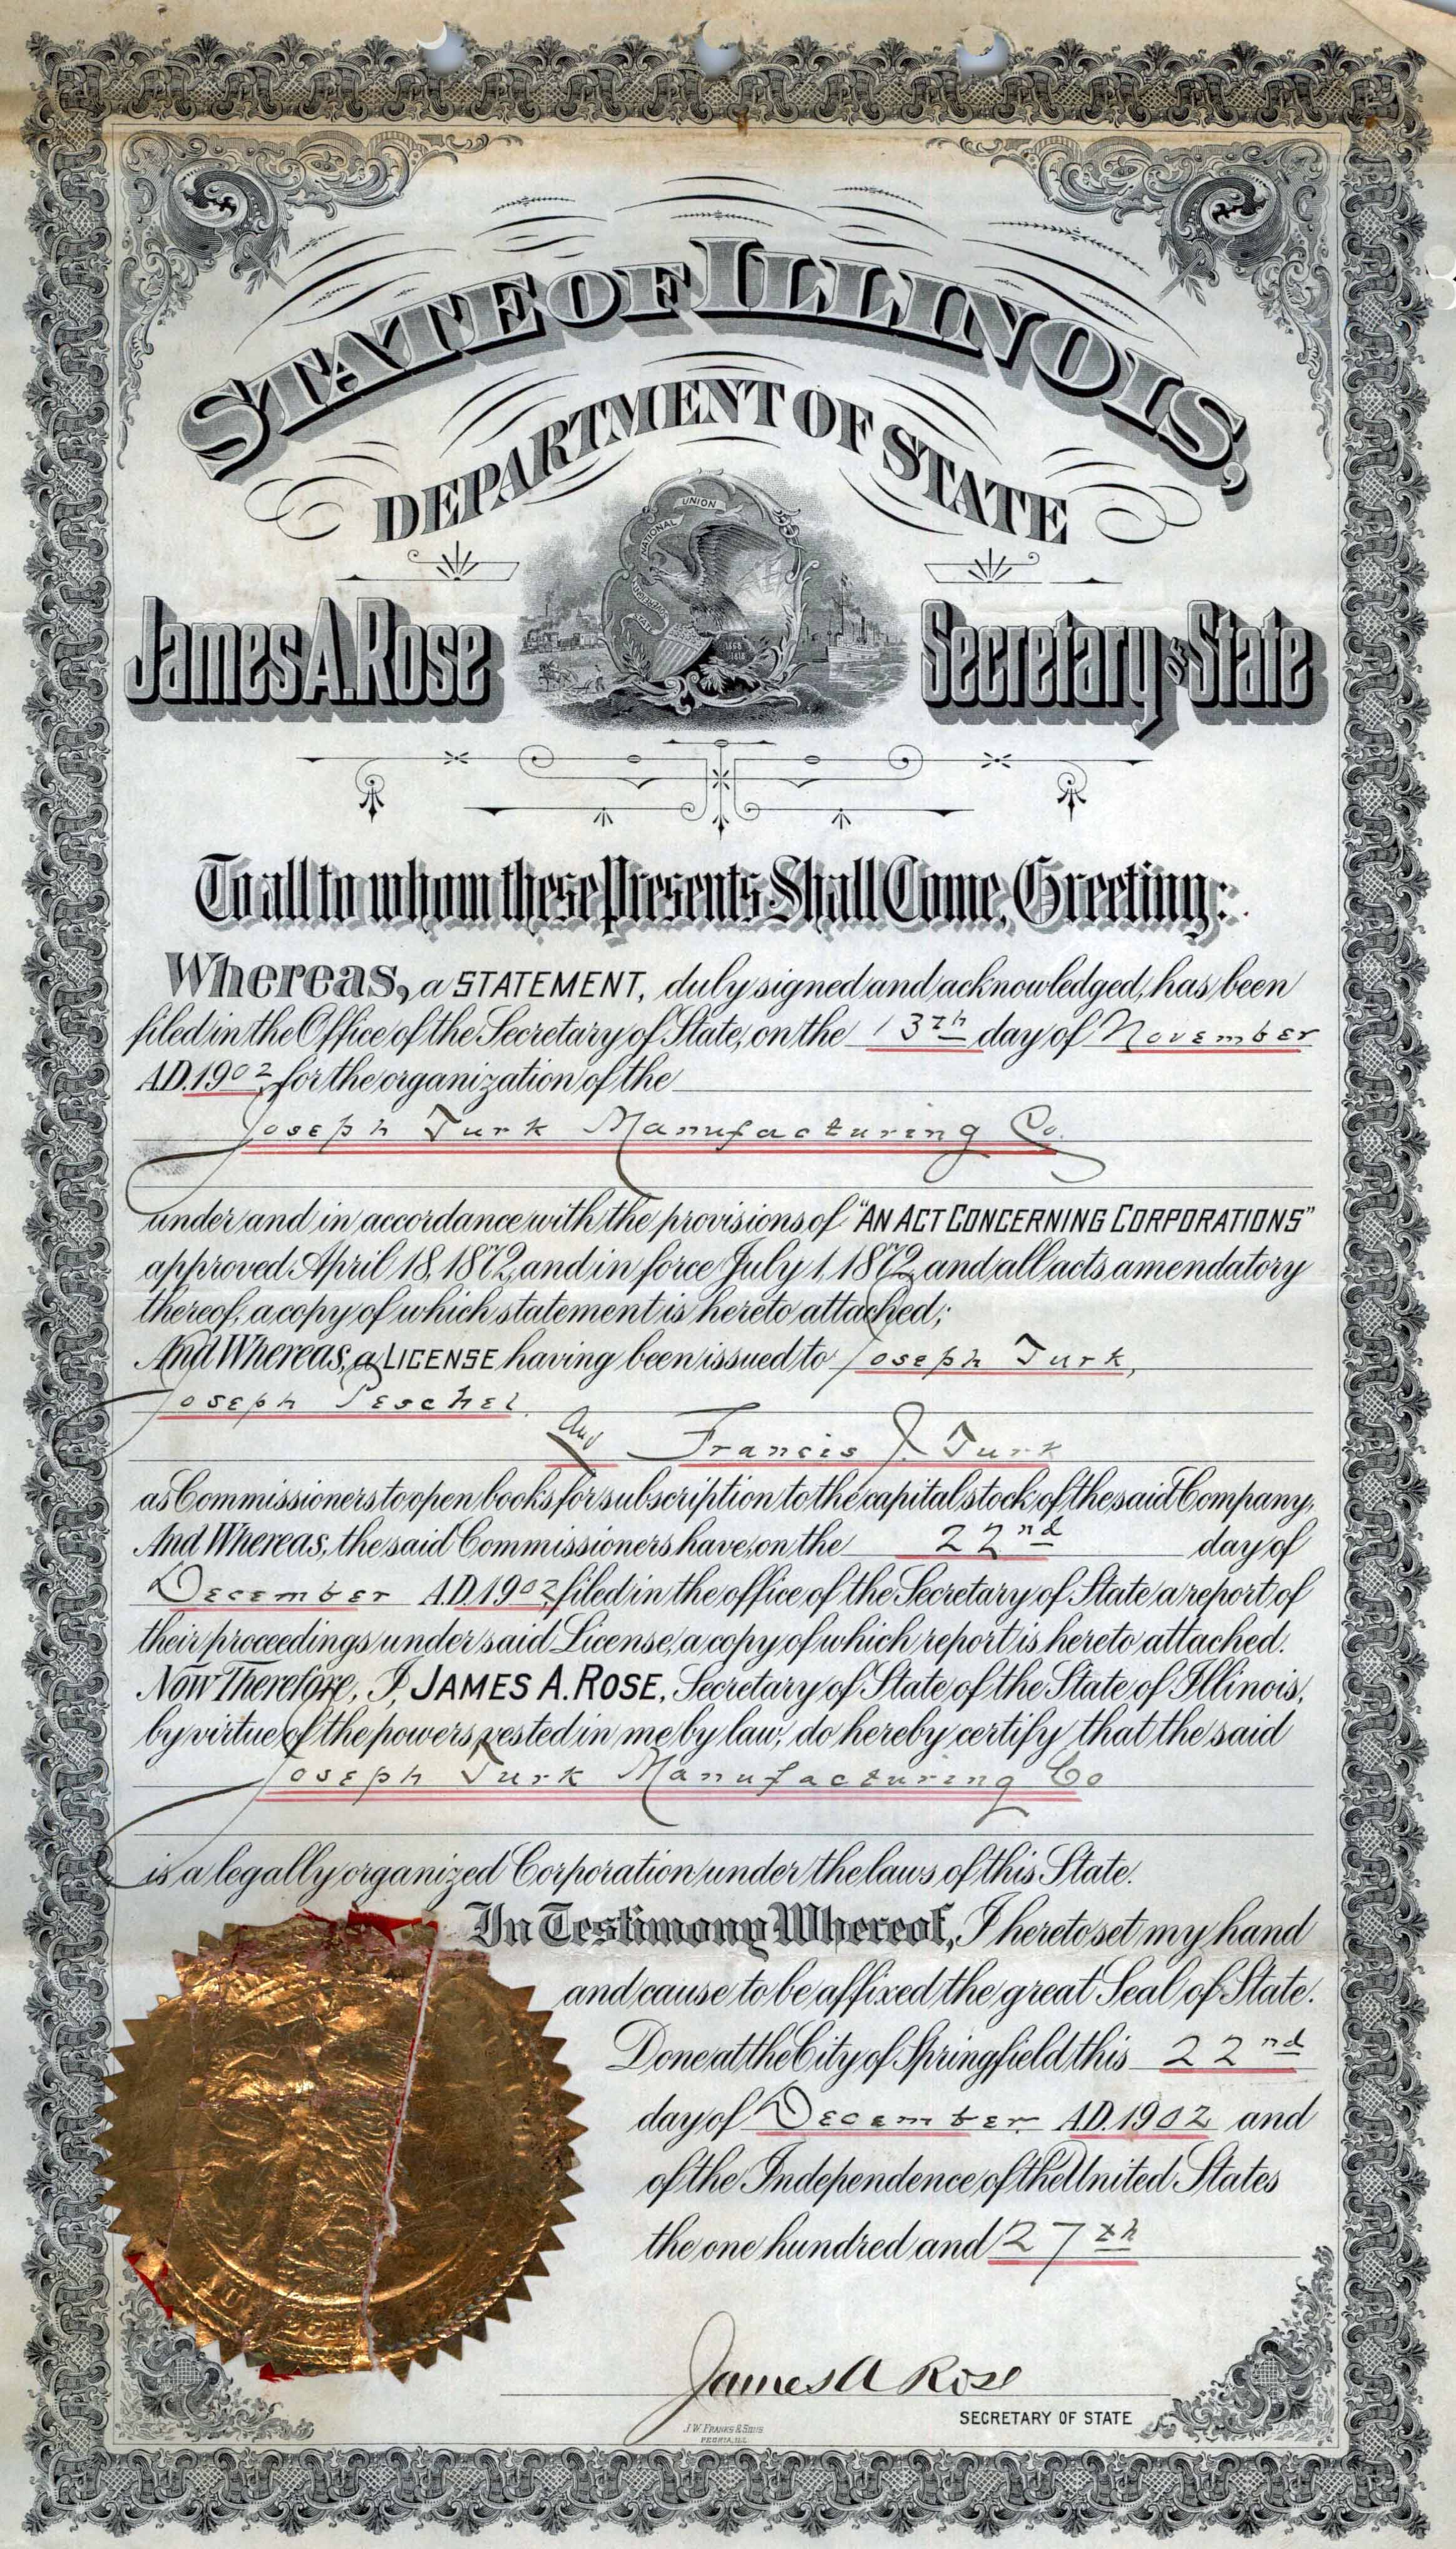 STATE OF ILLINOIS,
DEPARTMENT OF STATE
NATIONAL UNION
1868
1818
James A. Rose Secretary of State
To all to whom these Presents Shall Come, Greeting:
Whereas, a STATEMENT, duly signed and acknowledged, has been
filed in the Office of the Secretary of State, on the 13th day of November
A.D. 1902 for the organization of the
Joseph Turk Manufacturing Co.
under and in accordance with the provisions of "AN ACT CONCERNING CORPORATIONS"
approved April 18, 1872, and in force July 1, 1872, and all acts amendatory
thereof, a copy of which statement is hereto attached;
And Whereas, a LICENSE having been issued to Joseph Turk,
Joseph Peschel
And Francis J. Turk
as Commissioners to open books for subscription to the capital stock of the said Company,
And Whereas, the said Commissioners have, on the 22nd day of
December A.D. 1902 filed in the office of the Secretary of State a report of
their proceedings under said License, a copy of which report is hereto attached.
Now Therefore, I, JAMES A. ROSE, Secretary of State of the State of Illinois,
by virtue of the powers vested in me by law, do hereby certify that the said
Joseph Turk Manufacturing Co
is a legally organized Corporation under the laws of this State.
In Testimony Whereof, I hereto set my hand
and cause to be affixed the great Seal of State.
Done at the City of Springfield this 22nd
day of December A.D. 1902 and
of the Independence of the United States
the one hundred and 27th
James A Rose
SECRETARY OF STATE
J.W. FRANKS & SONS
PEORIA, ILL.